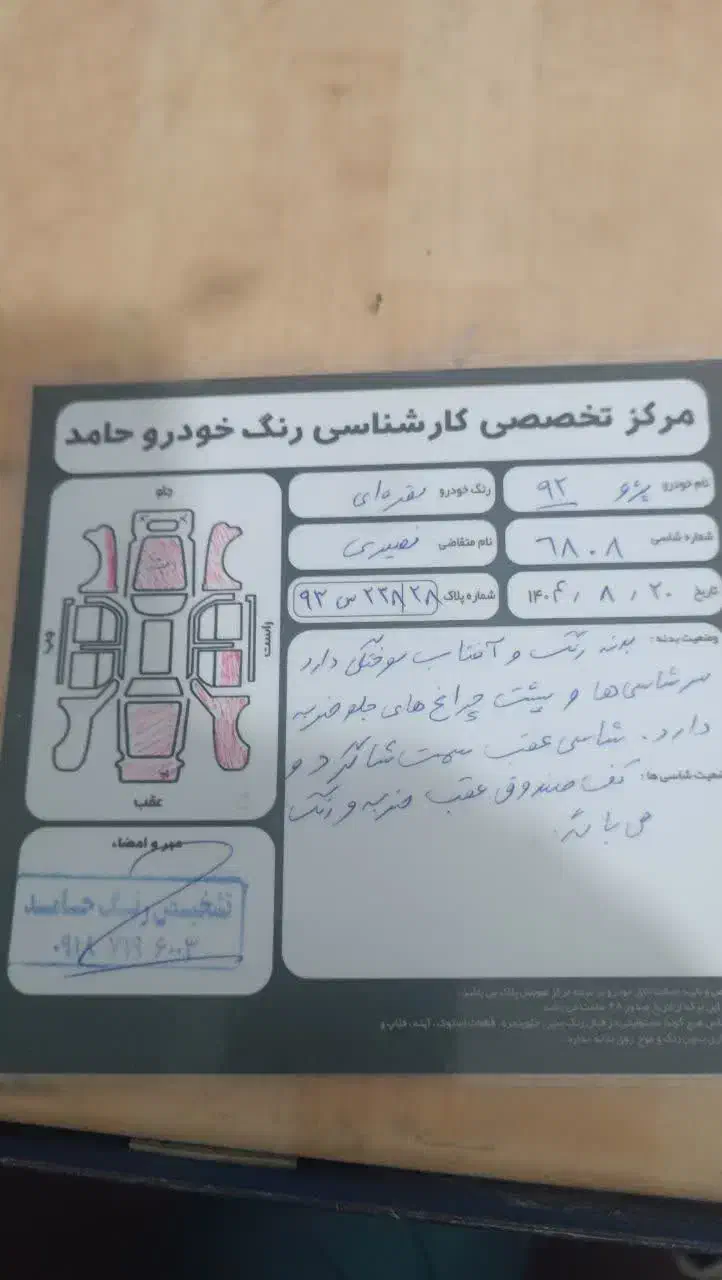 مرکز تخصصی کارشناسی رنگ خودرو حامد
نام خودرو پژو ۹۲
رنگ خودرو نقره‌ای
شماره شاسی ٦٨٠٨
نام متقاضی نصیری
تاریخ ١٤٠٤ / ٨ / ٢٠
شماره پلاک ٩٢ س ٢٣٨/٢٨
جلو
راست
چپ
عقب
وضعیت بدنه: بدنه رنگ و آفتاب سوختگی دارد
سرشاسی‌ها و پشت چراغ‌های جلو ضربه
دارد. شاسی عقب سمت شاگرد و
وضعیت شاسی ها: کف صندوق عقب ضربه و رنگ
می باشد.
مهر و امضاء
تشخیص رنگ حامد
۰۹۱۸ ۷۱۹ ۶۰۰۳